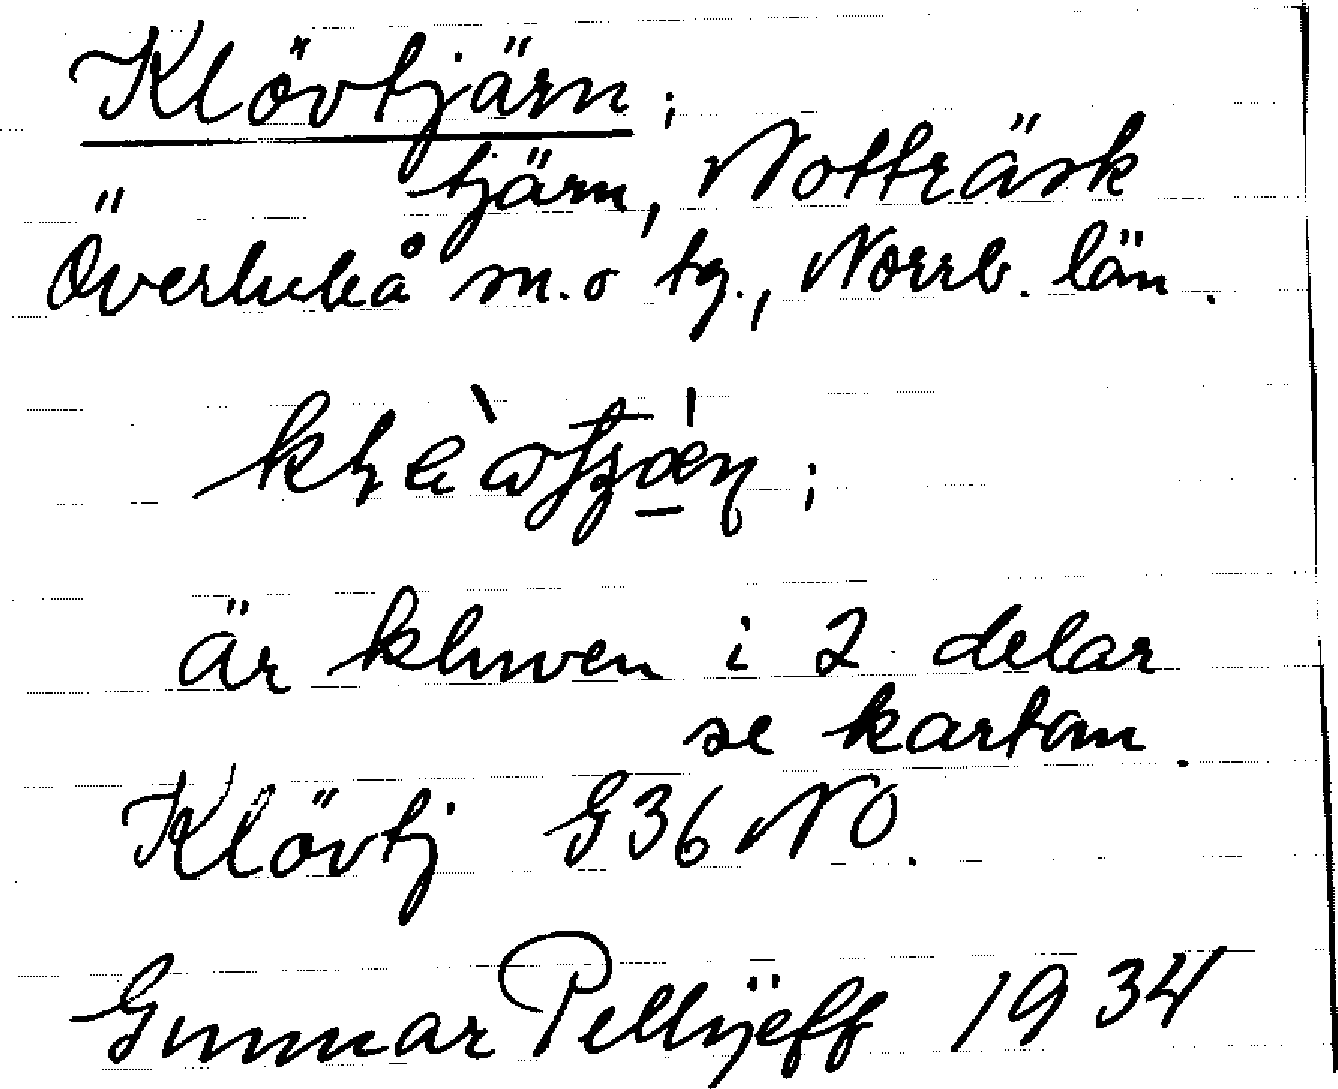 Klövtjärn;
tjärn, Notträsk
Överluleå m. o tg., Norrb. län.
är kluven i 2 delar
se kartan.
Klövtj G36 NO.
Gunnar Pellijeff 1934